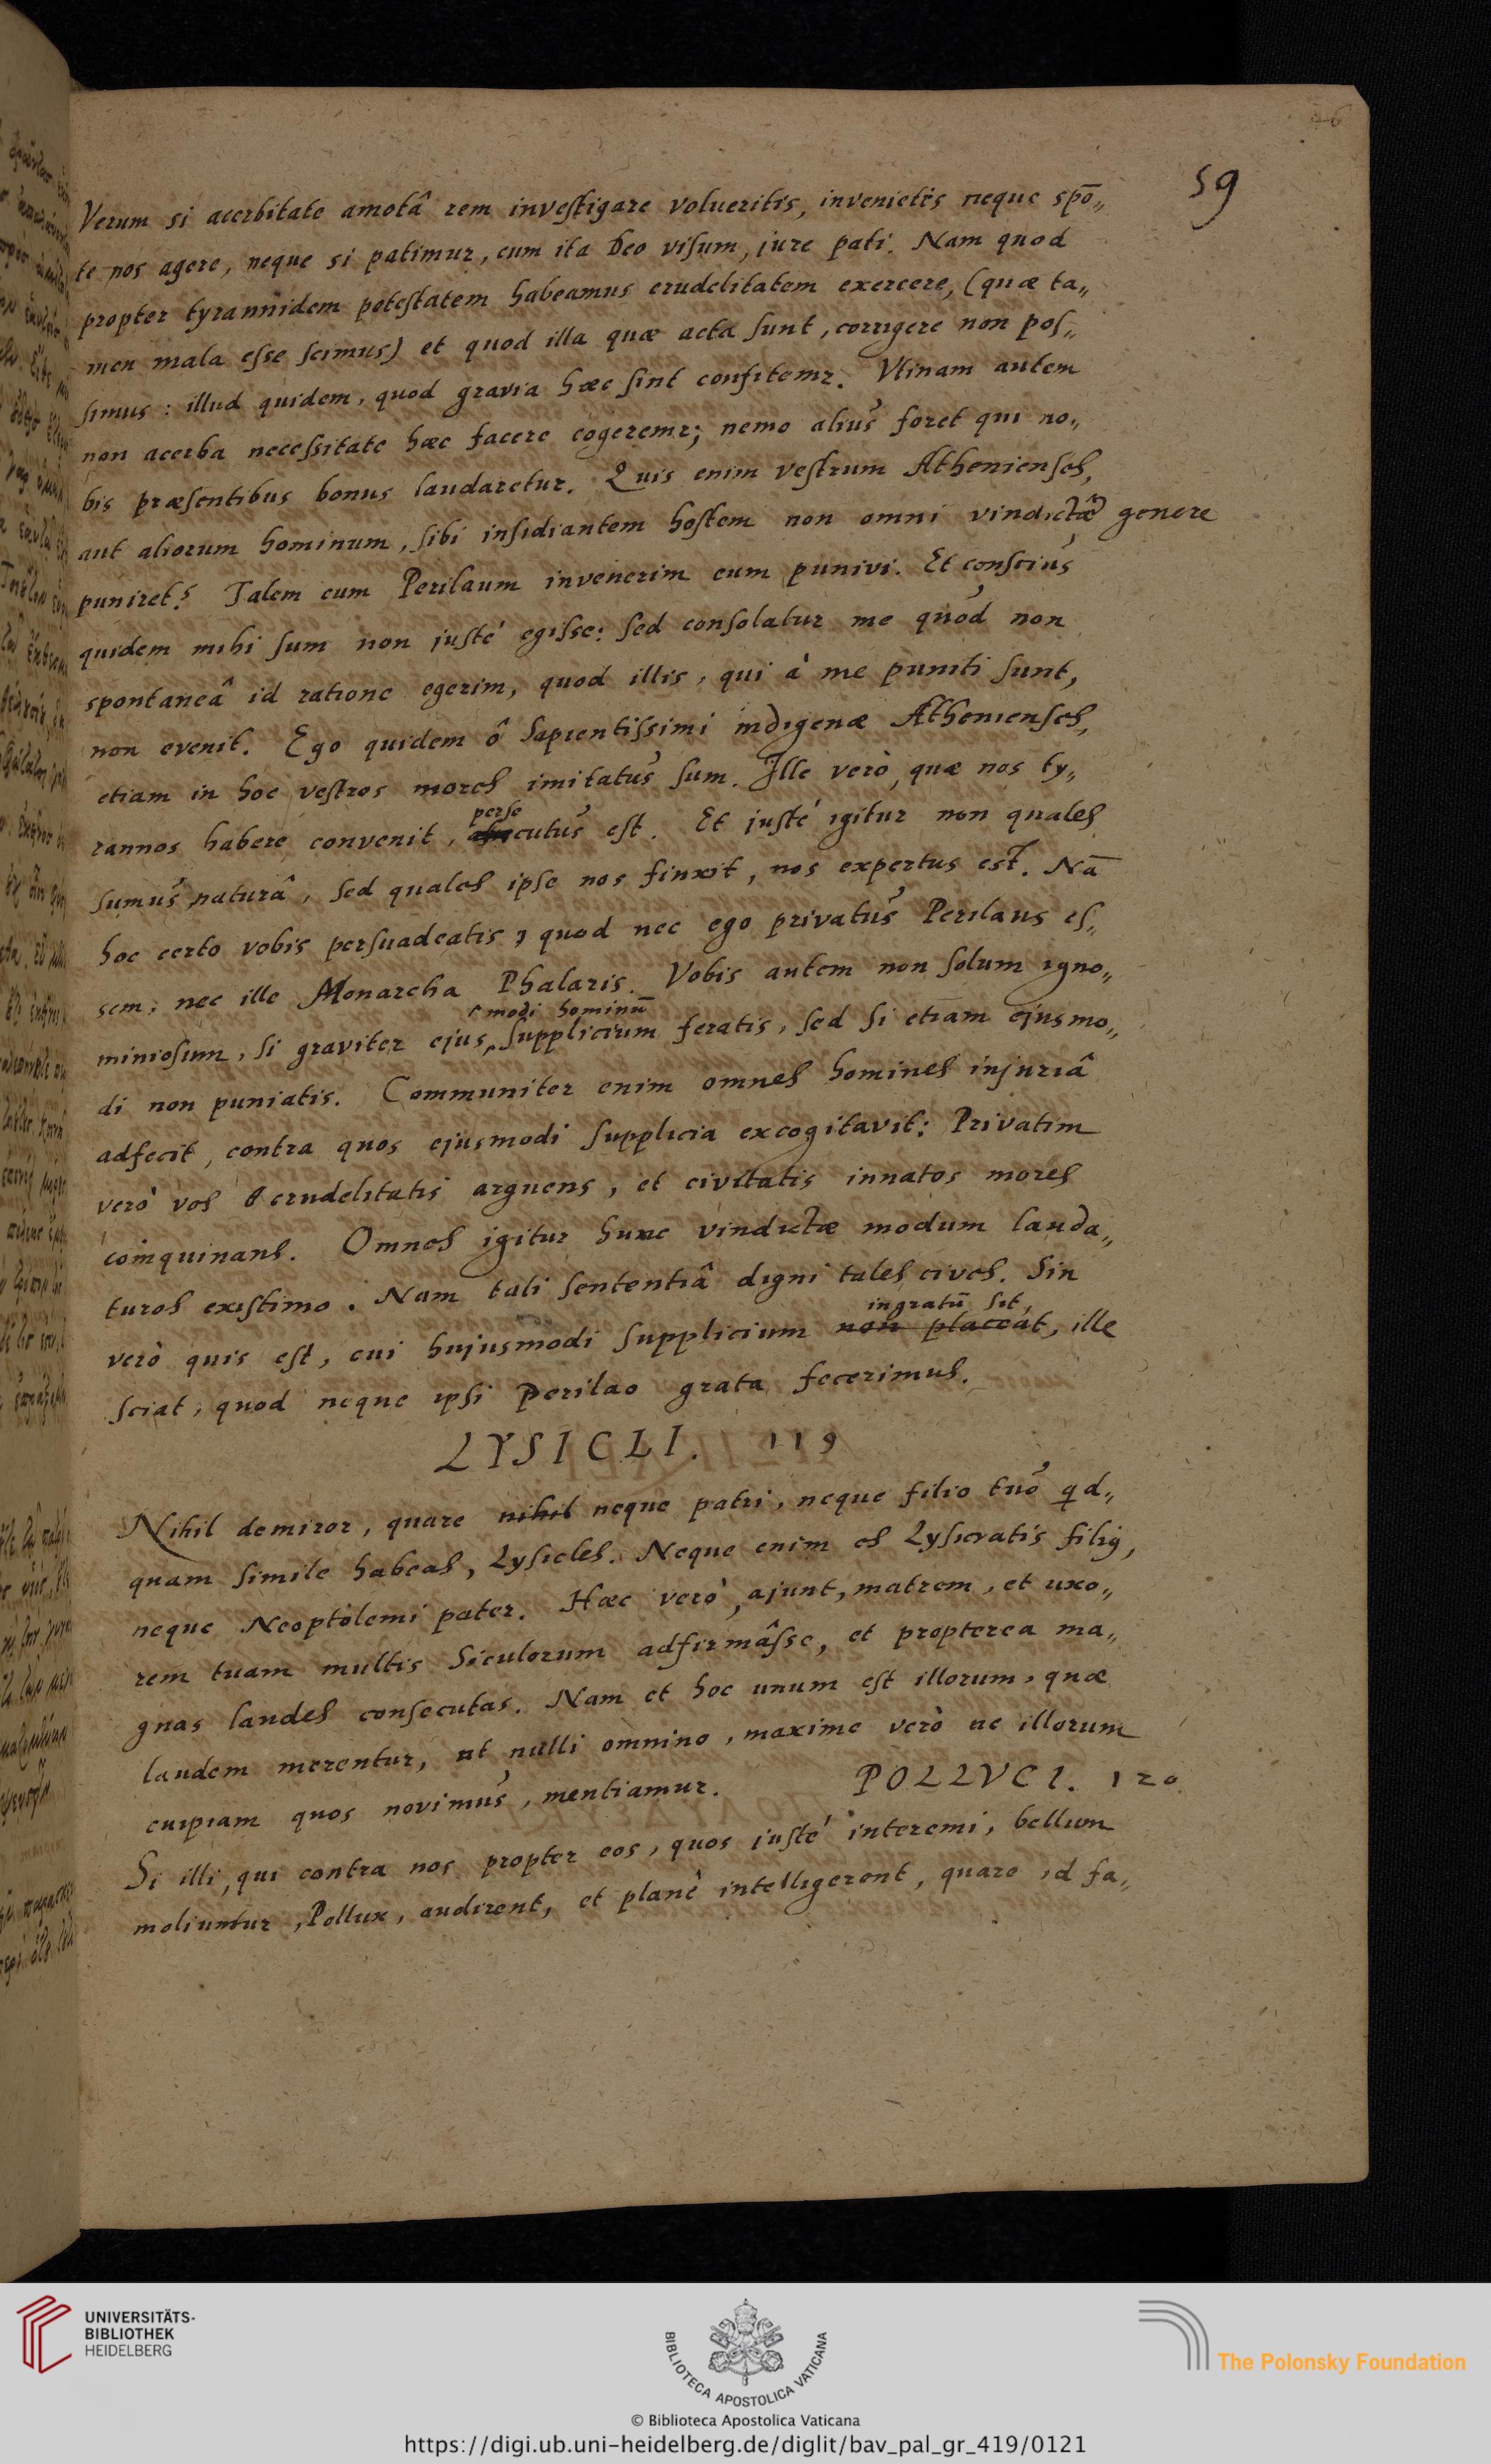 59
Verum si acerbitate amotâ rem investigare volueritis, invenietis neque spō„
te nos agere, neque si patimur, cum ita Deo visum, jure pati. Nam quod
propter tyrannidem potestatem habeamus crudelitatem exercere, (quæ ta„
men mala esse scimus) et quod illa quæ acta sunt, corrigere non pos„
simus: illud quidem, quod gravia hæc sint confitemr. Vtinam autem
non acerba necessitate hæc facere cogeremr; nemo alius foret qui no„
bis præsentibus bonus laudaretur. Quis enim vestrum Athenienses,
aut aliorum hominum, sibi insidiantem hostem non omni vindictæ genere
puniret? Talem cum Perilaum invenerim eum punivi. Et conscius
quidem mihi sum non justé egisse: sed consolatur me quod non
spontaneâ id ratione egerim, quod illis, qui à me puniti sunt,
non evenit. Ego quidem ô Sapientissimi indigenæ Athenienses,
etiam in hoc vestros mores imitatus sum. Ille verò, quæ nos ty„
perse
rannos habere convenit, cutus est. Et justé igitur non quales
sumus naturâ, sed quales ipse nos finxit, nos expertus est. Nā
hoc certo vobis persuadeatis, quod nec ego privatus Perilaus es„
sem, nec ille Monarcha Phalaris. Vobis autem non solum igno„
modi hominū
miniosum, si graviter ejus supplicium feratis, sed si etiam ejusmo„
di non puniatis. Communiter enim omnes homines injuriâ
adfecit, contra quos ejusmodi supplicia excogitavit: Privatim
verò vos crudelitatis arguens, et civitatis innatos mores
coinquinans. Omnes igitur hunc vindictæ modum lauda„
turos existimo. Nam tali sententiâ digni tales cives. Sin
ingratū sit,
verò quis est, cui hujusmodi supplicium non placeat, ille
sciat, quod neque ipsi Perilao grata fecerimus.
LYSICLI. 119
Nihil demiror, quare nihil neque patri, neque filio tuo qd„
quam simile habeas, Lysicles. Neque enim es Lysicratis filiꝰ,
neque Neoptolemi pater. Hæc verò, ajunt, matrem, et uxo„
rem tuam multis Siculorum adfirmâsse, et propterea ma„
gnas laudes consecutas. Nam et hoc unum est illorum, quæ
laudem merentur, ut nulli omnino, maxime verò ne illorum
cuipiam quos novimus, mentiamur. POLLVCI. 120
Si illi, qui contra nos propter eos, quos justé interemi, bellum
moliuntur, Pollux, audirent, et planè intelligerent, quare id fa„
UNIVERSITÄTS-
BIBLIOTHEK
HEIDELBERG
BIBLIOTECA APOSTOLICA VATICANA
The Polonsky Foundation
© Biblioteca Apostolica Vaticana
https://digi.ub.uni-heidelberg.de/diglit/bav_pal_gr_419/0121